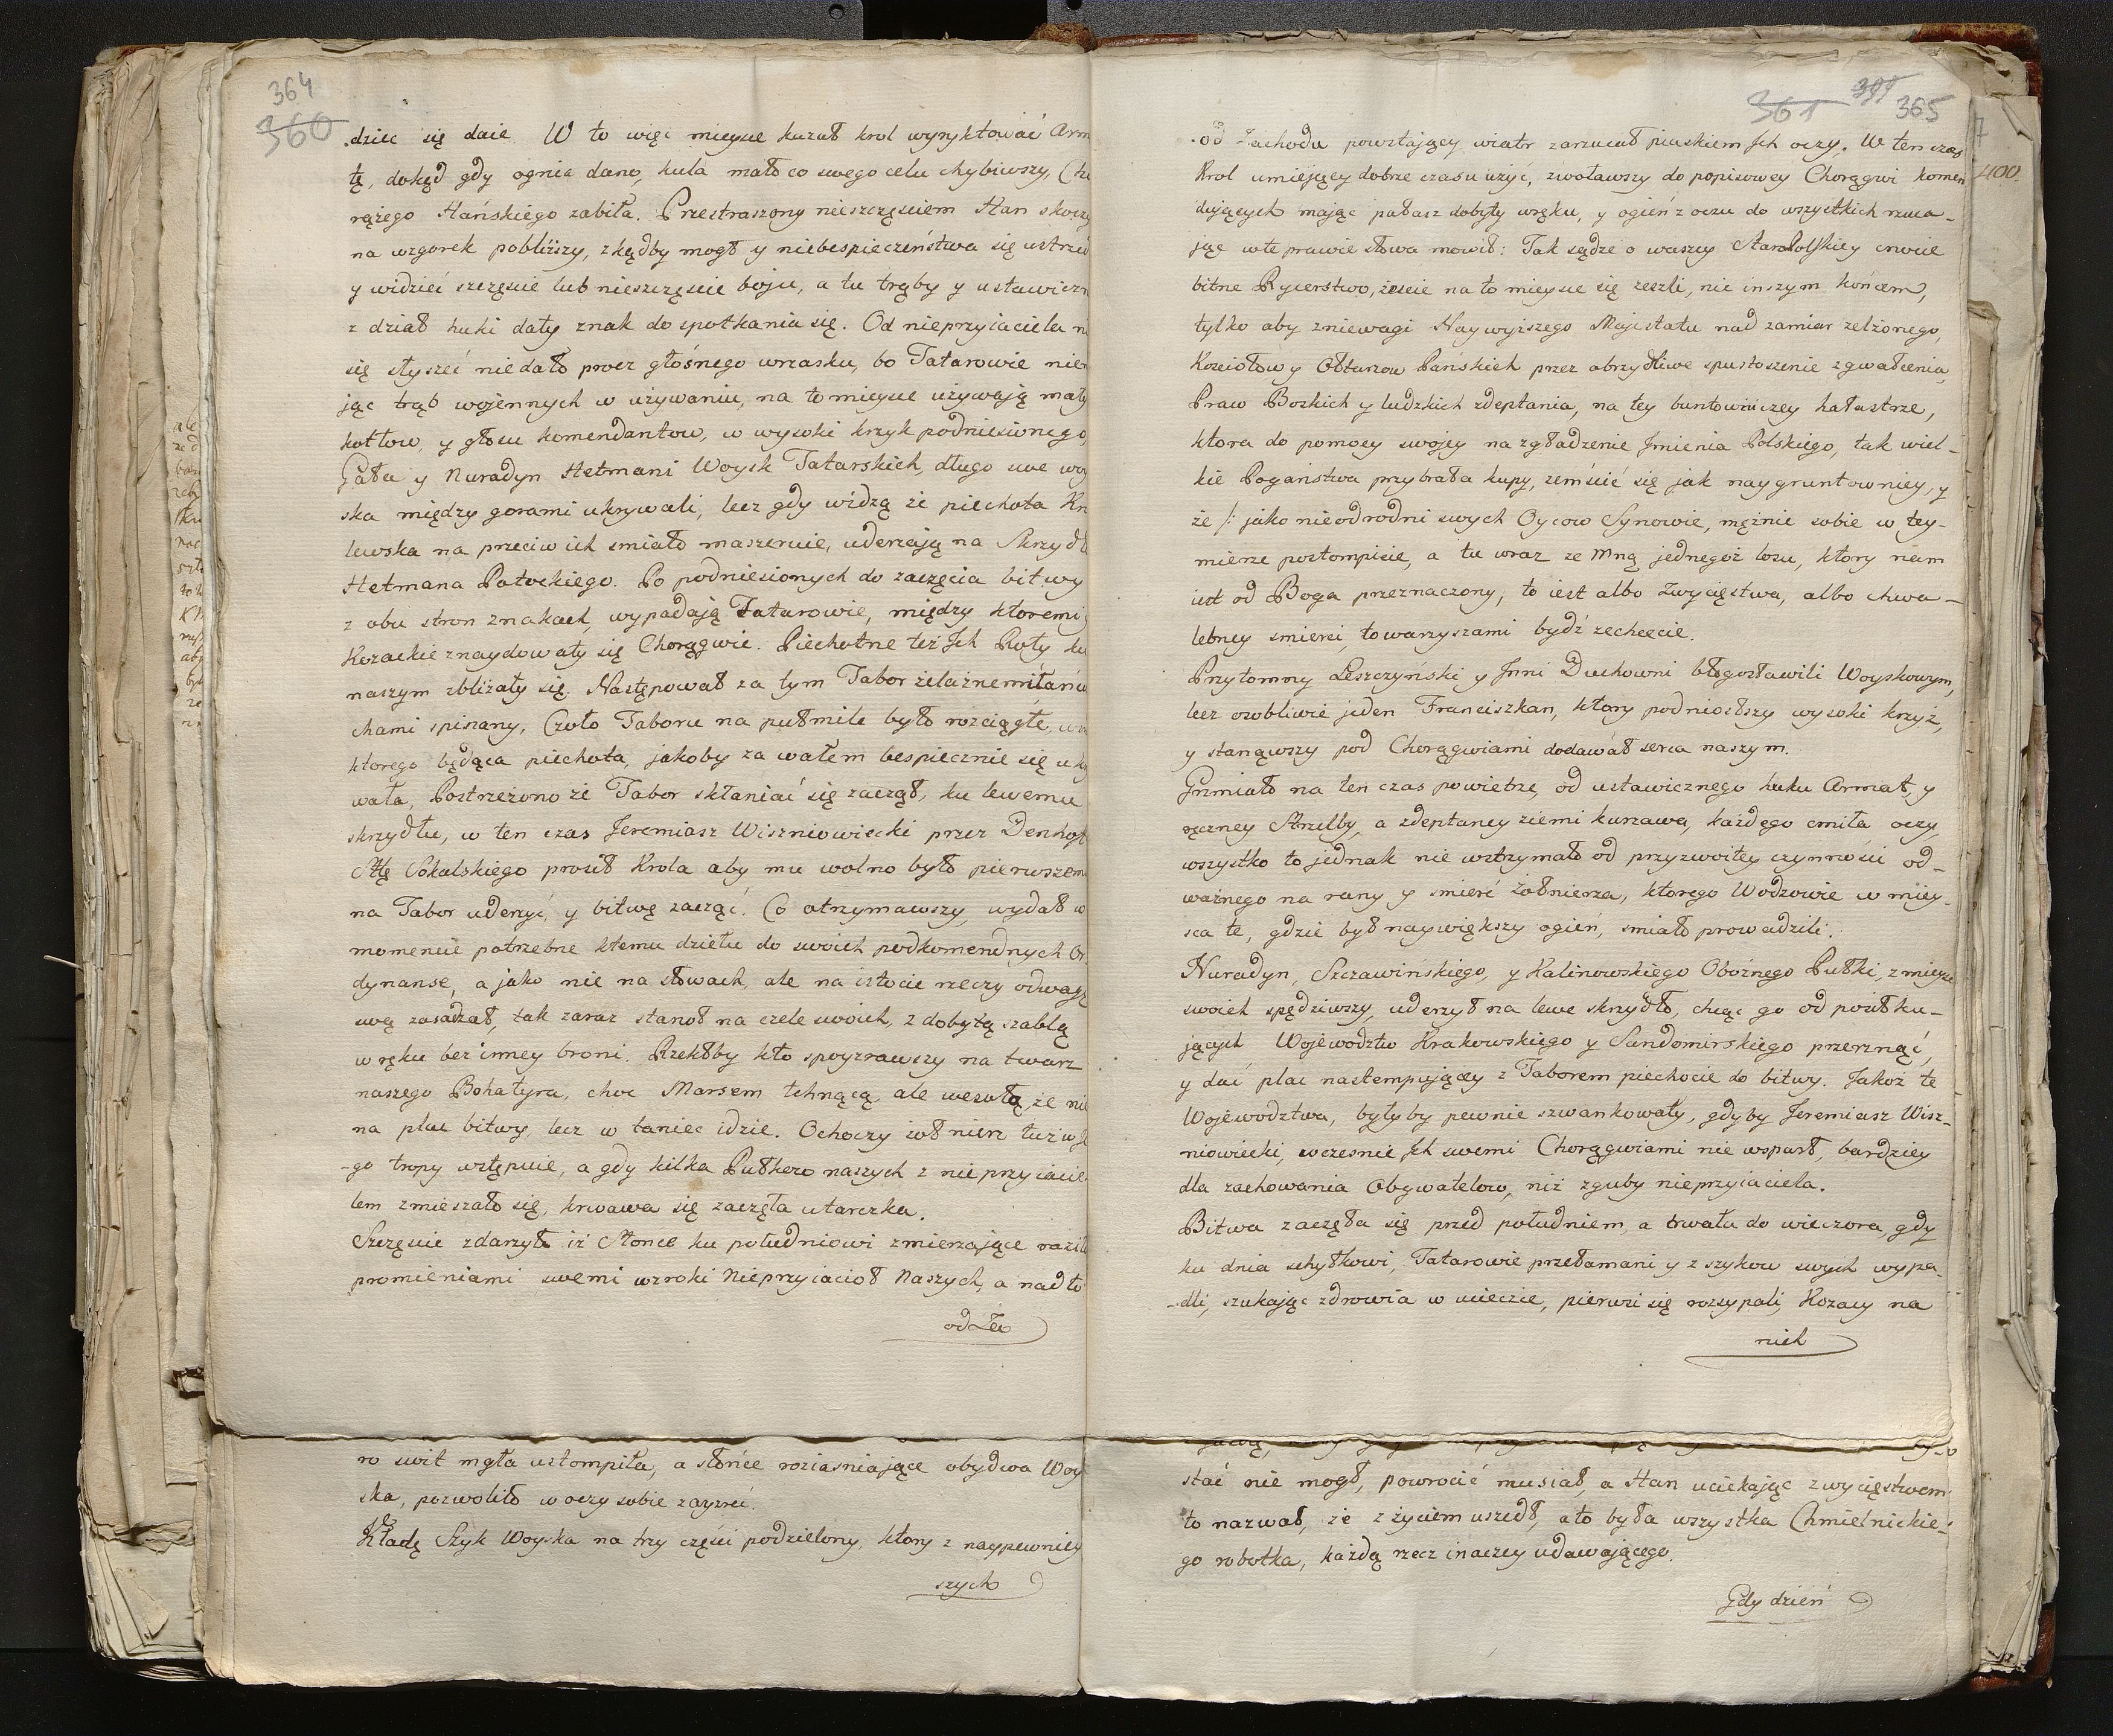 364
360
dziec się daie W to więc mieysce kazał krol wyryktować Arm
tę, dokąd gdy ognia dano, kula mało co swego celu chybiwszy, Cho
rążego Hańskiego zabiła. Przestraszony nieszczęściem Han skoczy
na wzgorek pobliższy, zkądby mogł y niebespieczeństwa się ustrzed
y widzieć szczęscie lub nieszczęscie boju, a tu trąby y ustawiczn
z dział huki dały znak do spotkania się. Od nieprzyiaciela ni
się słyszeć niedało procz głośnego wrzasku, bo Tatarowie niem
jąc trąb wojennych w używaniu, na to mieysce używają mały
kotłow, y głosu komendantow, w wysoki krzyk podniesionego,
Gała y Nuradyn Hetmani Woysk Tatarskich, długo swe woy
ska między gorami ukrywali, lecz gdy widzą że piechota Kro
lewska na przeciw ich smiało maszeruie, uderzają na Skrzydł
Hetmana Potockiego. Po podniesionych do zaczęcia bitwy
z obu stron znakach, wypadają Tatarowie, między ktoremi
Kozackie znaydowały się Chorągwie. Piechotne też Jch Roty ku
naszym zbliżały się. Następował za tym Tabor żelaznemi łańcu
chami spinany, Czoło Taboru na pułmile było rozciągłe, w
ktorego będąca piechota, jakoby za wałem bespiecznie się ukry
wała, Postrzeżono że Tabor skłaniać się zaczął, ku lewemu
skrzydłu, w ten czas Jeremiasz Wiszniowiecki przez Denhof
Sttę Sokalskiego prosił Krola aby mu wolno było pierwszem
na Tabor uderzyć, y bitwę zacząć. Co otrzymawszy, wydał w
momencie potrzebne ktemu dziełu do swoich podkomendnych Or
dynanse, a jako nie na słowach, ale na istocie rzeczy odwagę
swą zasadzał, tak zaraz stanoł na czele swoich, z dobytą szablą
w ręku bez inney broni. Rzekłby kto spoyzrawszy na twarz
naszego Bohatyra, choc Marsem tchnącą, ale wesołą, że nie
na plac bitwy, lecz w taniec idzie. Ochoczy żołnierz tuż w je
-go tropy wstępuie, a gdy kilka Pułkow naszych z nieprzyiacie
lem zmieszało się, krwawa się zaczęła utarczka.
Szczęscie zdarzyło iż Słonce ku południowi zmierzające raziło
promieniami swemi wzroki Nieprzyiacioł Naszych, a nad to
od Za
ro swit mgła ustompiła, a słońce roziasniające obydwa Woy
ska, pozwoliło w oczy sobie zayzrec.
Kładę Szyk Woyska na trzy części podzielony, ktory z naypewniey
szych
361 391 365
400
od Zachodu powstający wiatr zarzucał piaskiem Jch oczy. W ten czas
Krol umiejący dobrze czasu użyć, zwoławszy do popisowey Chorągwi komen
dujących mając pałasz dobyty w ręku, y ogień z oczu do wszystkich rzuca-
jąc w te prawie słowa mowił: Tak sądze o waszey StaroPolskiey cnocie
bitne Rycerstwo, iżescie na to mieysce się zeszli, nie inszym końcem,
tylko aby zniewagi Naywyższego Majestatu nad zamiar zelżonego,
Kosciołow y Ołtarzow Pańskich przez obrzydliwe spustoszenie zgwałcenia,
Praw Boskich y ludzkich zdeptania, na tey buntowniczey hałastrze,
ktora do pomocy swojey na zgładzenie Jmienia Polskiego, tak wiel-
kie Pogaństwa przybrała kupy, zemścić się jak naygruntowniey, y
że /: jako nieodrodni swych Oycow Synowie, mężnie sobie w tey-
mierze postompicie, a tu wraz ze Mną jednegoż losu, ktory nam
iest od Boga przeznaczony, to iest albo Zwycięstwa, albo chwa-
lebney smierci, towarzyszami bydź zechcecie.
Przytomny Leszczyński y Jnni Duchowni błogosławili Woyskowym,
lecz osobliwie jeden Franciszkan, ktory podniosłszy wysoki krzyż,
y stanąwszy pod Chorągwiami dodawał serca naszym.
Grzmiało na ten czas powietrze, od ustawicznego huku Armat, y
ręczney Strzelby, a zdeptaney ziemi kurzawa, każdego cmiła oczy,
wszystko to jednak nie wstrzymało od przyzwoitey czynności od-
ważnego na rany y smierć żołnierza, ktorego Wodzowie w miey-
sca te, gdzie był naywiększy ogień, smiało prowadzili.
Nuradyn, Szczawińskiego, y Kalinowskiego Oboźnego Pułki, z mieysc
swoich spędziwszy, uderzył na lewe skrzydło, chcąc go od posiłku-
jących Wojewodztw Krakowskiego y Sandomirskiego przerznąć,
y dać plac nastempującey z Taborem piechocie do bitwy. Jakoż te
Wojewodztwa, byłyby pewnie szwankowały, gdyby Jeremiasz Wisz-
niowiecki, wczesnie Jch swemi Chorągwiami nie wsparł, bardziey
dla zachowania Obywatelow, niż zguby nieprzyiaciela.
Bitwa zaczęła się przed południem, a trwała do wieczora, gdy
ku dnia schyłkowi, Tatarowie przełamani y z szykow swych wypa-
-dli, szukając zdrowia w ucieczce, pierwsi się rozsypali, Kozacy na
nich
stać nie mogł, powrocić musiał, a Han uciekając zwycięstwem
to nazwał, że z życiem uszedł, a to była wszystka Chmielnickie-
go robotka, każdą rzecz inaczey udawającego.
Gdy dzień